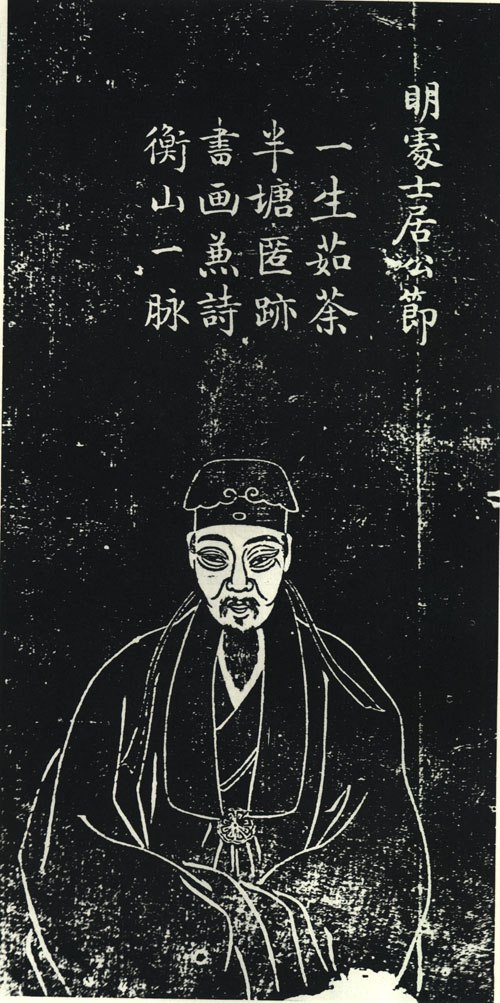 明處士居公節
一生茹荼
半塘匿跡
書画兼詩
衡山一脉